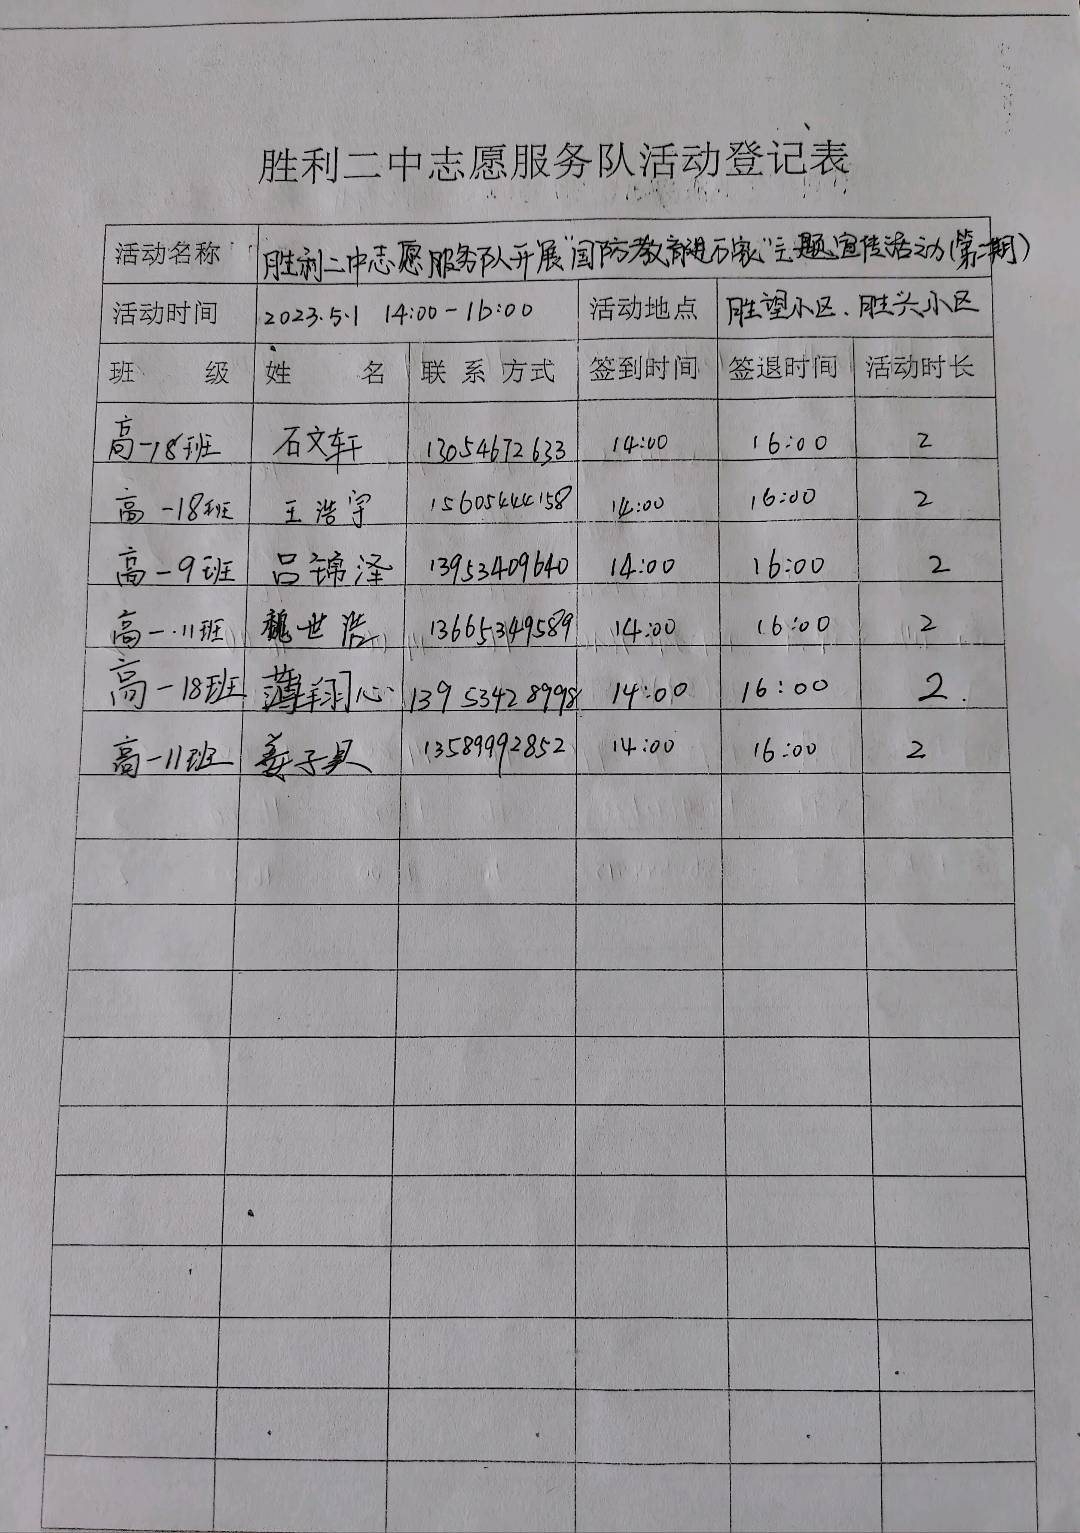 胜利二中志愿服务队活动登记表
活动名称 胜利二中志愿服务队开展"国防教育进万家"主题宣传活动(第二期)
活动时间 2023.5.1 14:00-16:00 活动地点 胜望小区、胜兴小区
班 级 姓 名 联 系 方式 签到时间 签退时间 活动时长
高一18班 石文轩 13054672633 14:00 16:00 2
高一18班 王浩宇 15605444158 14:00 16:00 2
高一9班 吕锦泽 13953409640 14:00 16:00 2
高一.11班 魏世浩 13665349589 14:00 16:00 2
高一18班 薄翔心 13953428998 14:00 16:00 2.
高一11班 姜子昊 13589992852 14:00 16:00 2